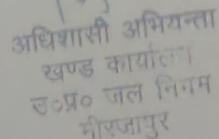 अधिशासी अभियन्ता
खण्ड कार्यालय
उ०प्र० जल निगम
मीरजापुर